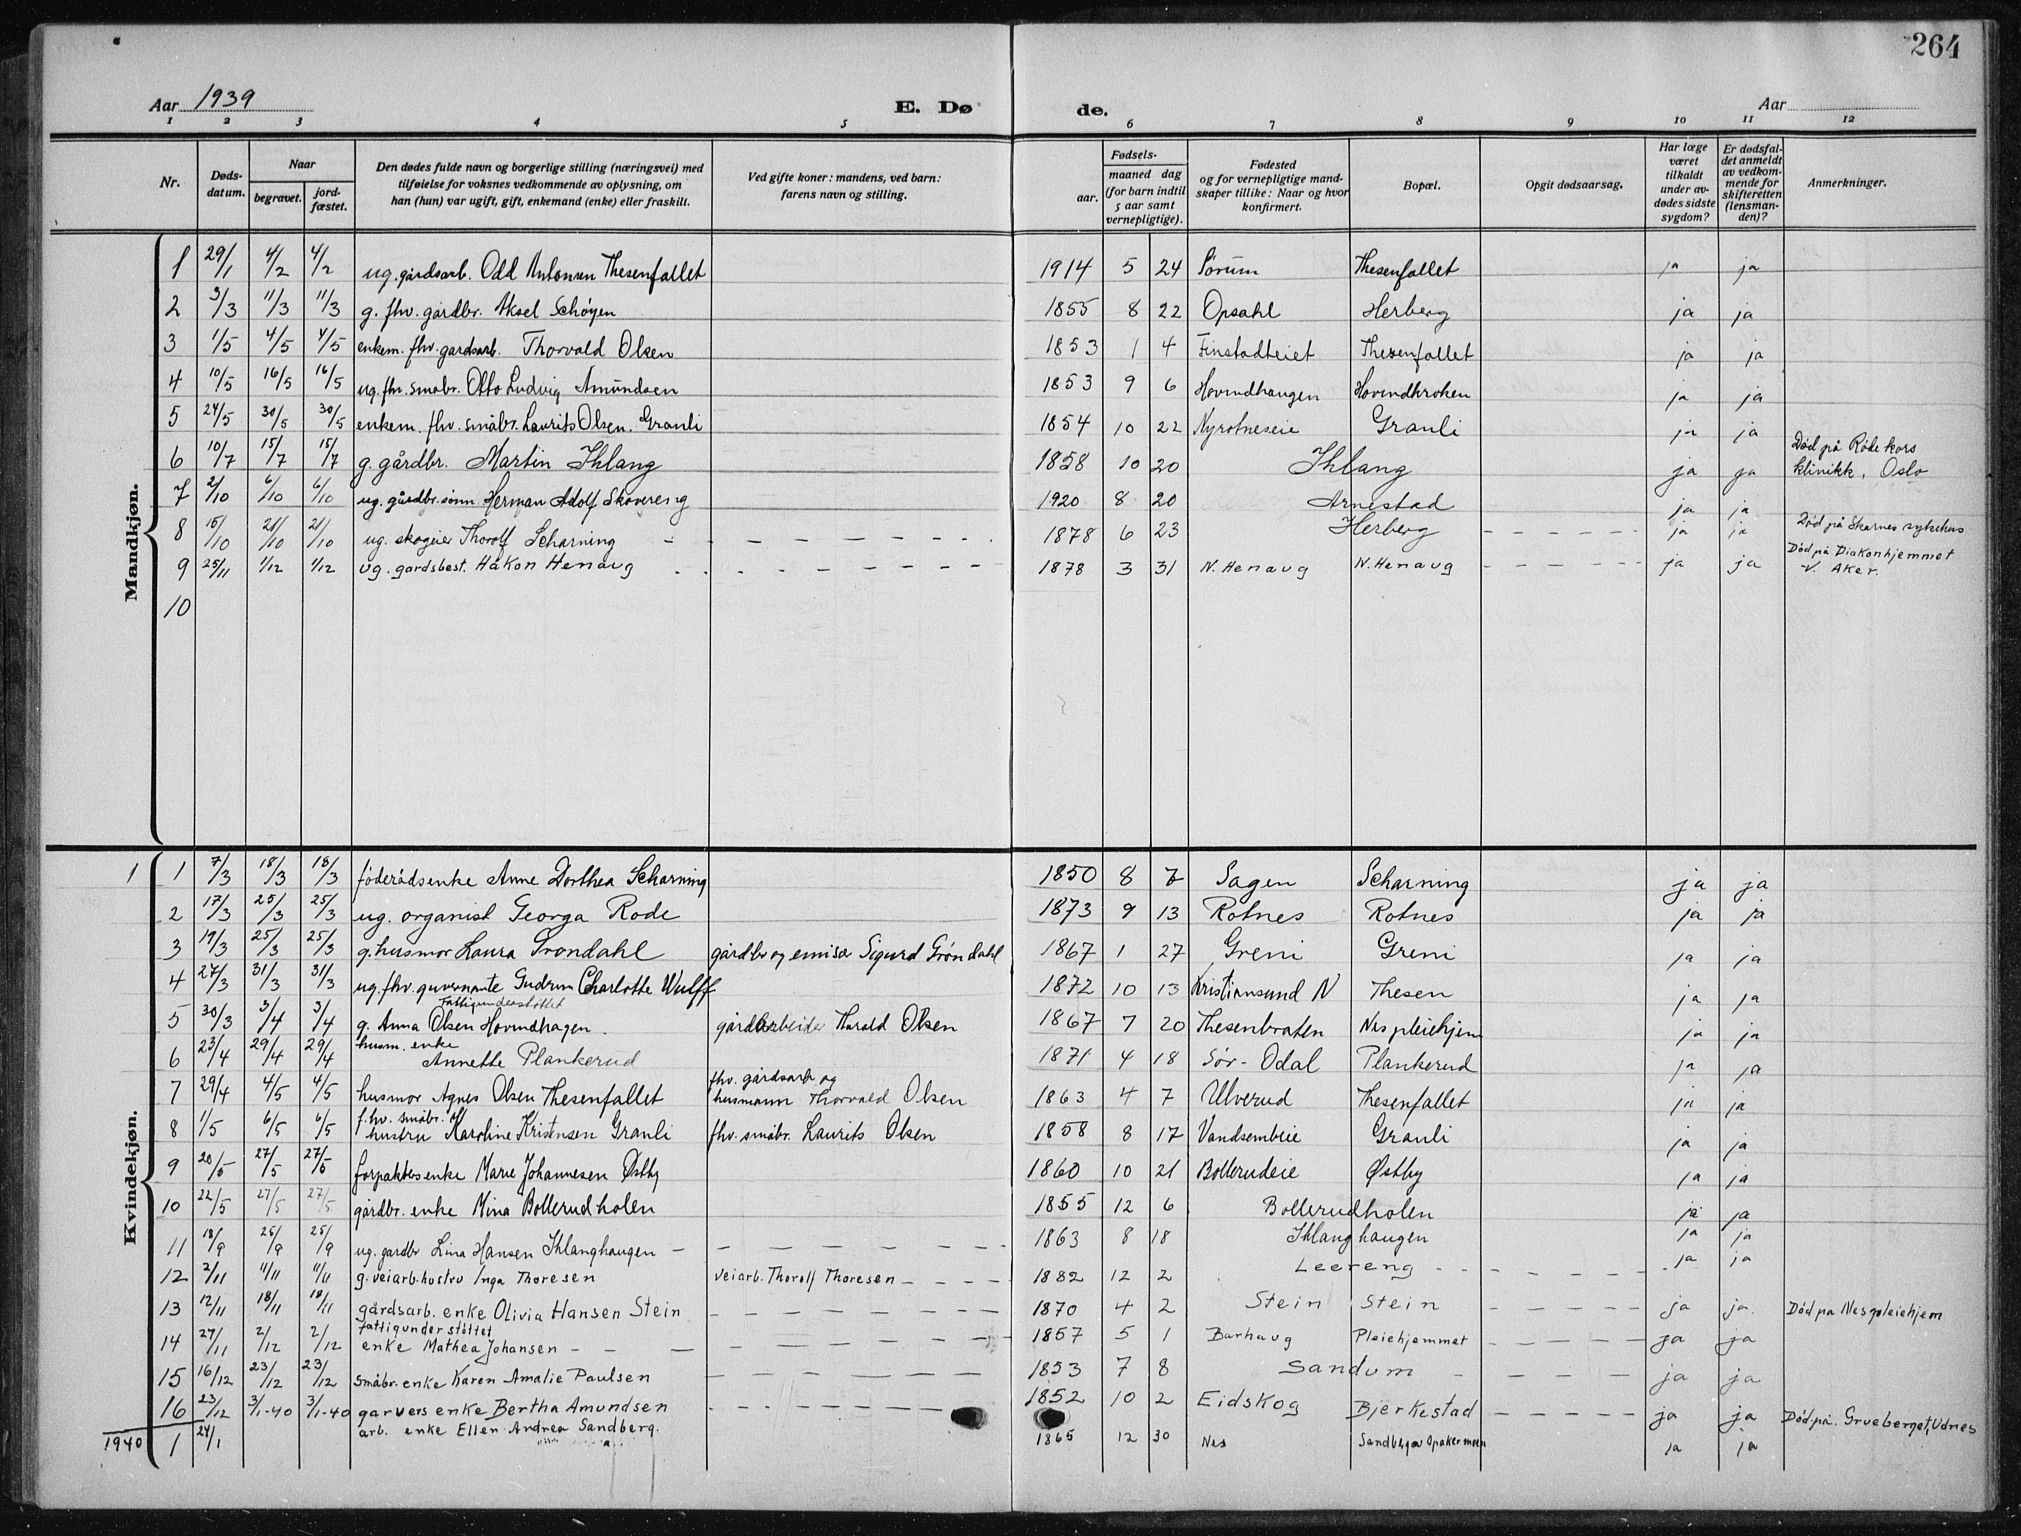 264
Aar 1939 E. Dø de. Aar
1 2 3 4 5 6 7 8 9 10 11 12
Nr. Døds-datum. Naar begravet. jord-fæstet. Den dødes fulde navn og borgerlige stilling (næringsvei) med tilføielse for voksnes vedkommende av oplysning, om han (hun) var ugift, gift, enkemand (enke) eller fraskilt. Ved gifte koner: mandens, ved barn: farens navn og stilling. Fødsels- aar. maaned dag (for barn indtil 5 aar samt vernepligtige). Fødested og for vernepligtige mandskaper tillike: Naar og hvor konfirmert. Bopæl. Opgit dødsaarsag. Har læge været tilkaldt under avdødes sidste sygdom? Er dødsfaldet anmeldt av vedkommende for skifteretten (lensmanden)? Anmerkninger.
Mandkjøn.
1 29/1 4/2 4/2 ug. gårdsarb. Odd Antonsen Thesenfallet 1914 5 24 Sørum Thesenfallet ja ja
2 3/3 11/3 11/3 g. fhv. gårdbr. Aksel Schøyen 1855 8 22 Opsahl Herberg ja ja
3 1/5 4/5 4/5 enkem. fhv. gardsarb. Thorvald Olsen 1853 1 4 Finstadteiet Thesenfallet ja ja
4 10/5 16/5 16/5 ug. fhv. småbr. Otto Ludvig Amundsen 1853 9 6 Hovindhaugen Hovindkroken ja ja
5 24/5 30/5 30/5 enkem. fhv. småbr. Laurits Olsen. Granli 1854 10 22 Nyrotneseie Granli ja ja
6 10/7 15/7 15/7 g. gårdbr. Martin Ihlang 1858 10 20 Ihlang ja ja Død på Røde kors klinikk, Oslo
7 2/10 6/10 6/10 ug. gårdbr. sønn Herman Adolf Skövereng 1920 8 20 Arnestad ja ja
8 15/10 21/10 21/10 ug. skogeier Thorolf Scharning 1878 6 23 Herberg ja ja Død på Skarnes sykehus
9 25/11 1/12 1/12 ug. gardsbest. Håkon Henaug 1878 3 31 N. Henaug N. Henaug ja ja Død på Diakonhjemmet V. Aker.
10
Kvindekjøn.
1 1 7/3 18/3 18/3 føderådsenke Anne Dorthea Scharning 1850 8 7 Sagen Scharning ja ja
2 17/3 25/3 25/3 ug. organist Georga Rode 1873 9 13 Rotnes Rotnes ja ja
3 19/3 25/3 25/3 g. husmor Laura Grøndahl gårdbr og emisær Sigurd Grøndahl 1867 1 27 Greni Greni ja ja
4 27/3 31/3 31/3 ug. fhv. guvernante Gudrun Charlotte Wulff 1872 10 13 Kristiansund N Thesen ja ja
5 30/3 3/4 3/4 fattigunderstøttet g. Anna Olsen Hovindhagen. gårdarbeider Harald Olsen 1867 7 20 Thesenbraten Nes pleiehjem ja ja
6 23/4 29/4 29/4 husm. enke Annette Plankerud 1871 4 18 Sør-Odal Plankerud ja ja
7 29/4 4/5 4/5 husmor Agnes Olsen Thesenfallet fhv. gårdsarb og husmann Thorvald Olsen 1863 4 7 Ulverud Thesenfallet ja ja
8 1/5 6/5 6/5 f.hv. småbr. hustru Karoline Kristensen Granli fhv. småbr. Laurits Olsen 1858 8 17 Vandsembeie Granli ja ja
9 20/5 27/5 27/5 forpakters enke Marie Johannesen Østby 1860 10 21 Bollerudeie Østby ja ja
10 22/5 27/5 27/5 gårdbr. enke Mina Bollerudholen 1855 12 6 Bollerudholen ja ja
11 18/9 25/9 25/9 ug. gardbr Lina Hansen Ihlanghaugen 1863 8 18 Ihlanghaugen ja ja
12 2/11 11/11 11/11 g. veiarb. hustru Inga Thoresen veiarb. Thorolf Thoresen 1882 12 2 Leereng ja ja
13 12/11 18/11 18/11 gårdsarb. enke Olivia Hansen Stein 1870 4 2 Stein Stein ja ja. Død pa Nes pleiehjem
14 27/11 2/12 2/12 fattigunderstöttet enke Mathea Johansen 1857 5 1 Barhaug Pleiehjemmet ja ja
15 16/12 23/12 23/12 småbr. enke Karen Amalie Paulsen 1853 7 8 Sandum ja ja
16 23/12 3/1-40 3/1-40 garvers enke Bertha Amundsen 1852 10 2 Eidskog Bjerkestad ja ja Død på. Grueberget, Udnes
1940 1 24/1 arb. enke Ellen Andrea Sandberg. 1865 12 30 Nes ja ja